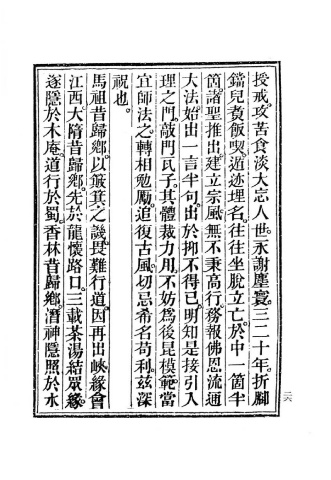 授戒。攻苦食淡。大忘人世。永謝塵寰。三二十年。折腳
鐺兒煑飯喫。遁迹埋名。往往坐脫立亡。於中一箇半
箇。諸聖推出。建立宗風。無不秉高行。務報佛恩。流通
大法。始出一言半句。出於抑不得已。明知是接引入
理之門。敲門瓦子。其體裁力用。不妨為後昆模範。當
宜師法之。轉相勉厲。追復古風。切忌希名苟利。茲深
祝也。
馬祖昔歸鄉。以簸箕之譏。畏難行道。因再出峽緣會
江西。大隋昔歸鄉。先於龍懷路口。三載茶湯結眾緣。
遂隱於木庵。道行於蜀。香林昔歸鄉。潛神隱照於水
二六